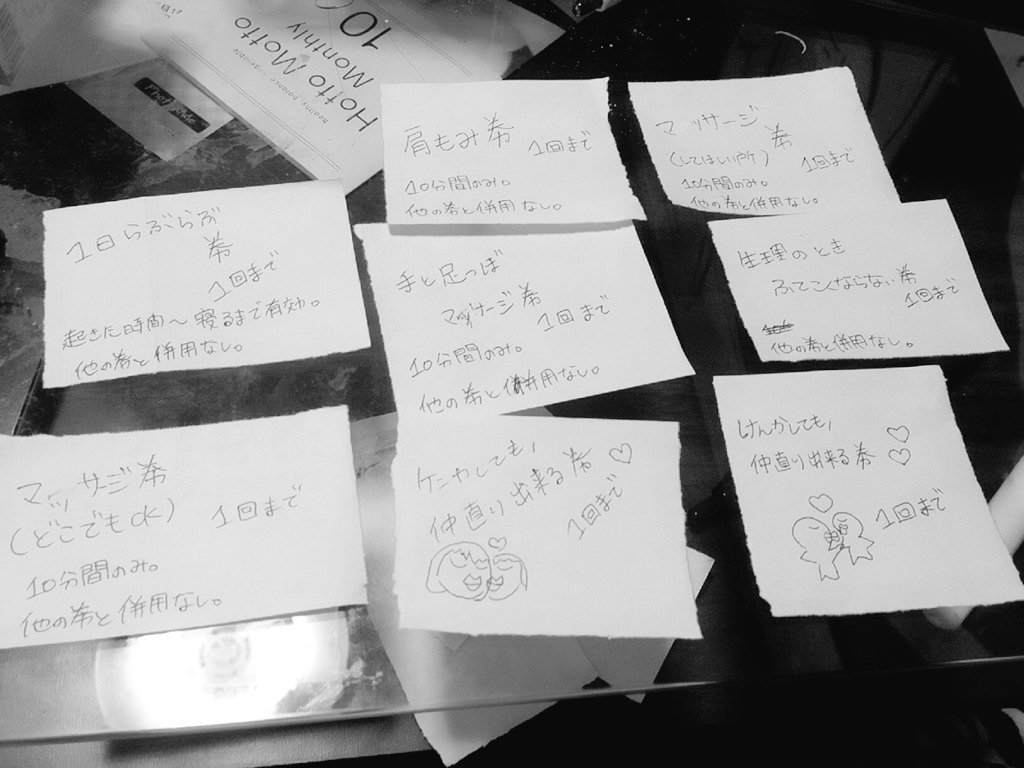 Hotto Motto
Monthly
10
healthy balance vegetable
肩もみ券
1回まで
10分間のみ。
他の券と併用なし。
マッサージ
券
(してほしい所)
1回まで
10分間のみ。
他の券と併用なし。
1日らぶらぶ
券
1回まで
起きた時間〜寝るまで有効。
他の券と併用なし。
手と足つぼ
マッサージ券
1回まで
10分間のみ。
他の券と併用なし。
生理のとき
ふてこくならない券
1回まで
他の券と併用なし。
マッサージ券
(どこでもok)
1回まで
10分間のみ。
他の券と併用なし。
ケンカしても、
仲直り出来る券♡
1回まで
けんかしても、
仲直り出来る券
1回まで